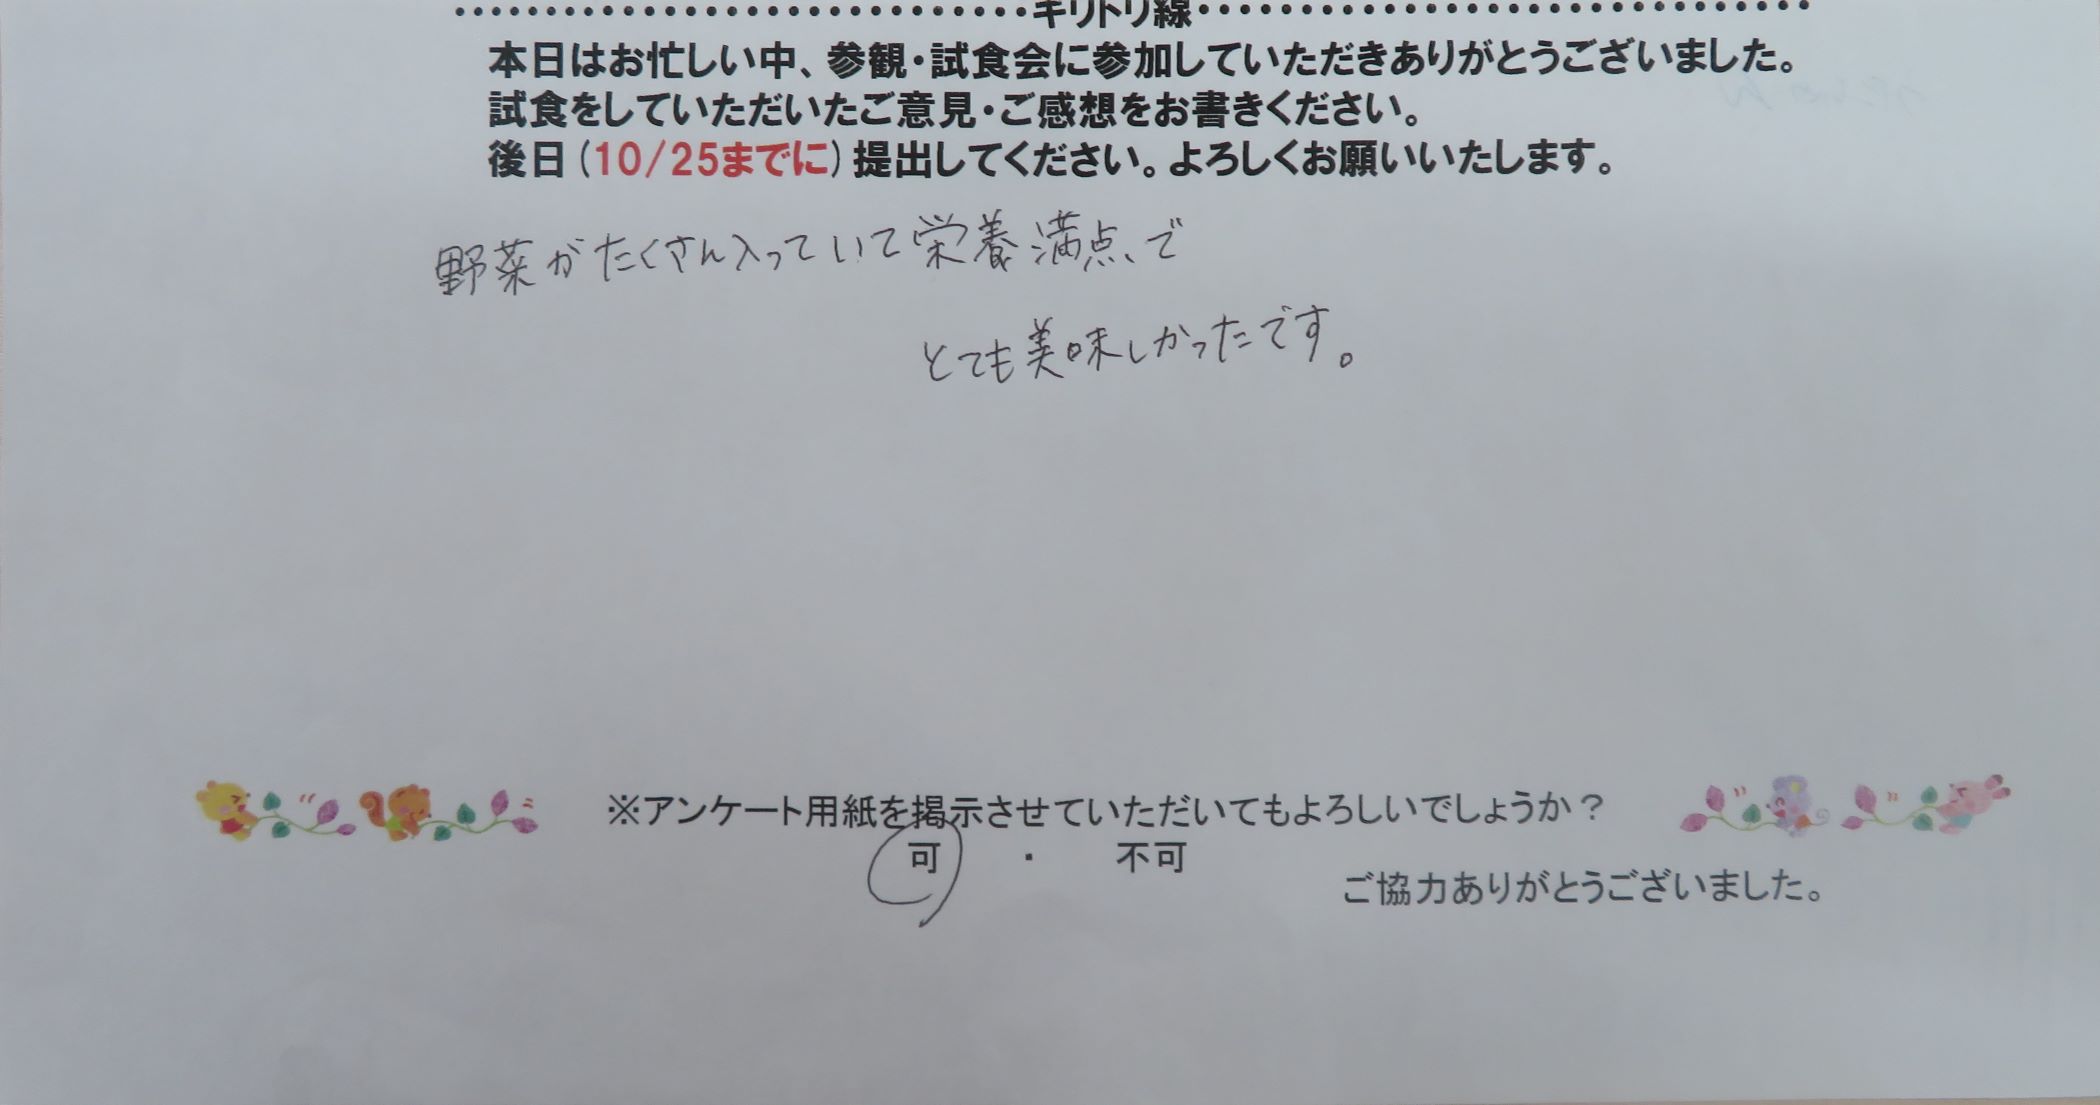 ・・・・・・・・・・・・・・・・・・・・・・・・・・・・・・キリトリ線・・・・・・・・・・・・・・・・・・・・・・・・・・・・・・・・
本日はお忙しい中、参観・試食会に参加していただきありがとうございました。
試食をしていただいたご意見・ご感想をお書きください。
後日(10/25までに)提出してください。よろしくお願いいたします。
野菜がたくさん入っていて栄養満点で
とても美味しかったです。
※アンケート用紙を掲示させていただいてもよろしいでしょうか？
可 ・ 不可
ご協力ありがとうございました。